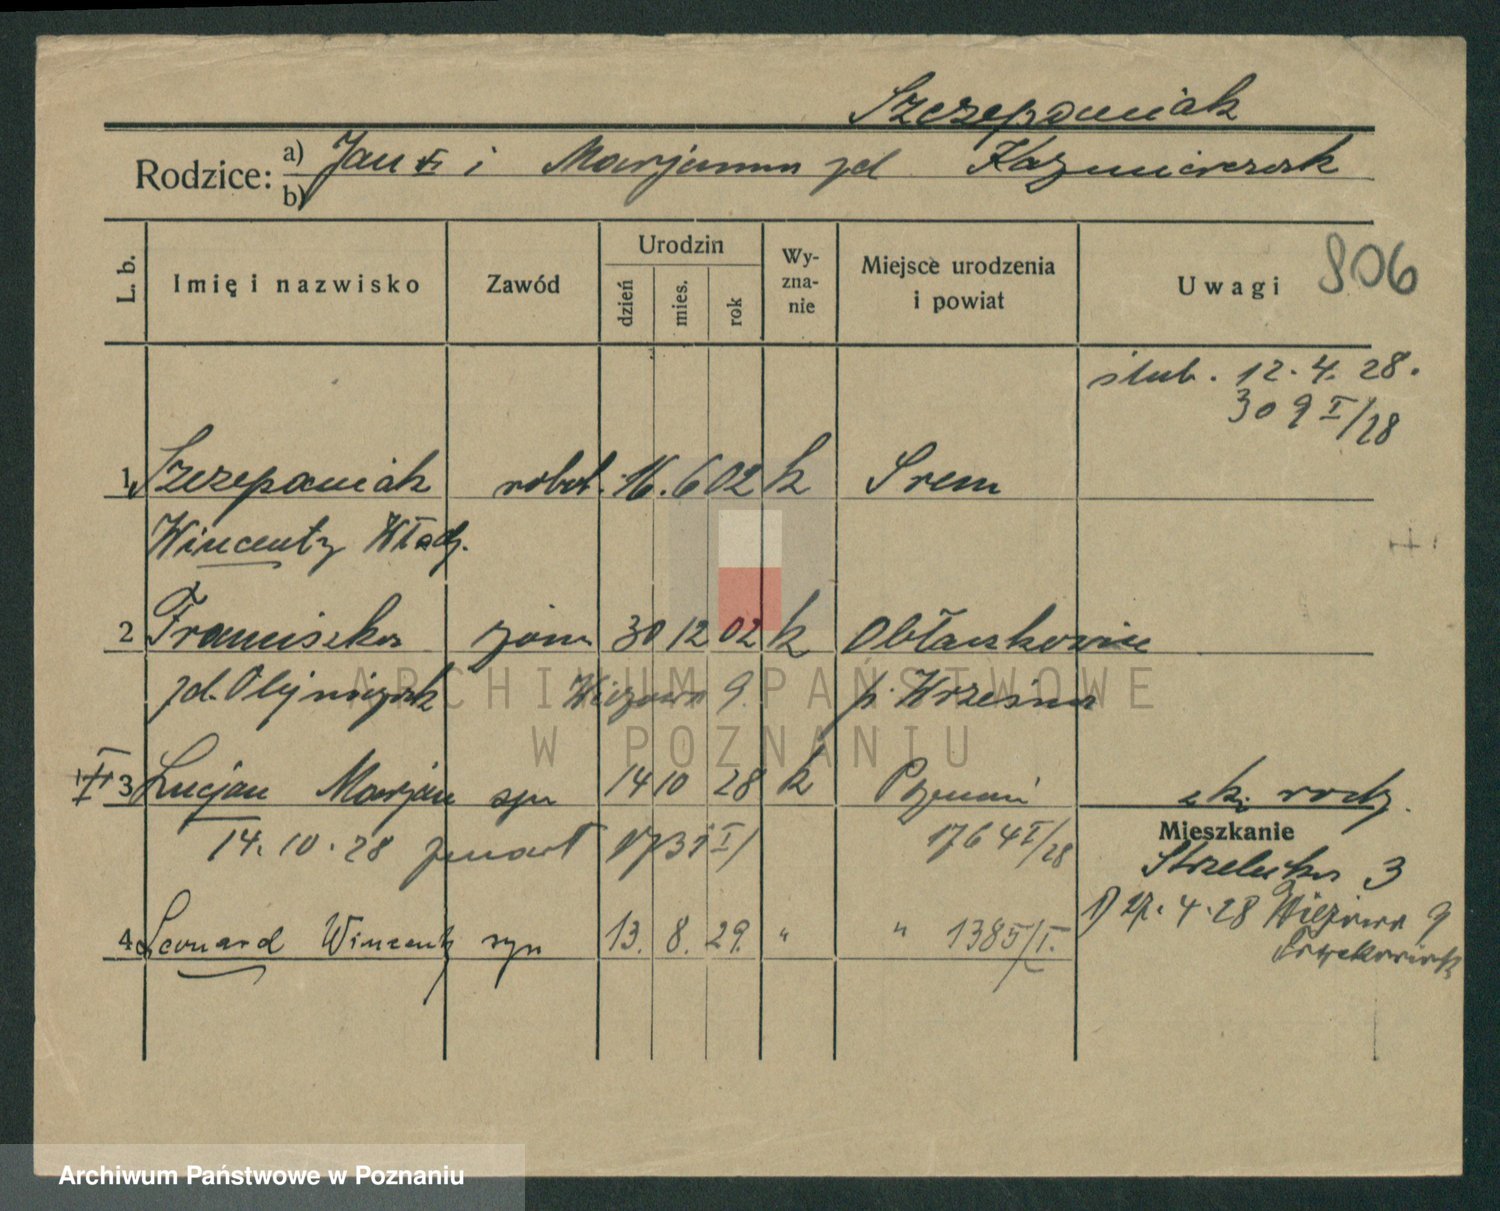 Szczepaniak
Rodzice: a) Jan i Marjanna zd Kaźmierczak
b)
L. b. Imię i nazwisko Zawód Urodzin dzień mies. rok Wyznanie Miejsce urodzenia i powiat Uwagi 806
ślub. 12. 4. 28.
309 I/28
1 Szczepaniak robot. 16. 6 02 k Śrem
Wincenty Wład.
2 Franciszka żona 30 12 02 k Obłaczkowice
zd. Olejniczak Wiązowa 9. p. Września
3 Lucjan Marjan syn 14 10 28 k Poznań
z ks. rodz.
14. 10. 28 zmarł 1731 I/ 1764 I/28
Mieszkanie
Strzelecka 3
1) 27. 4. 28 Wiązowa 9
4 Leonard Wincenty syn 13. 8. 29. " " 1385/I.
ARCHIWUM PAŃSTWOWE
W POZNANIU
Archiwum Państwowe w Poznaniu